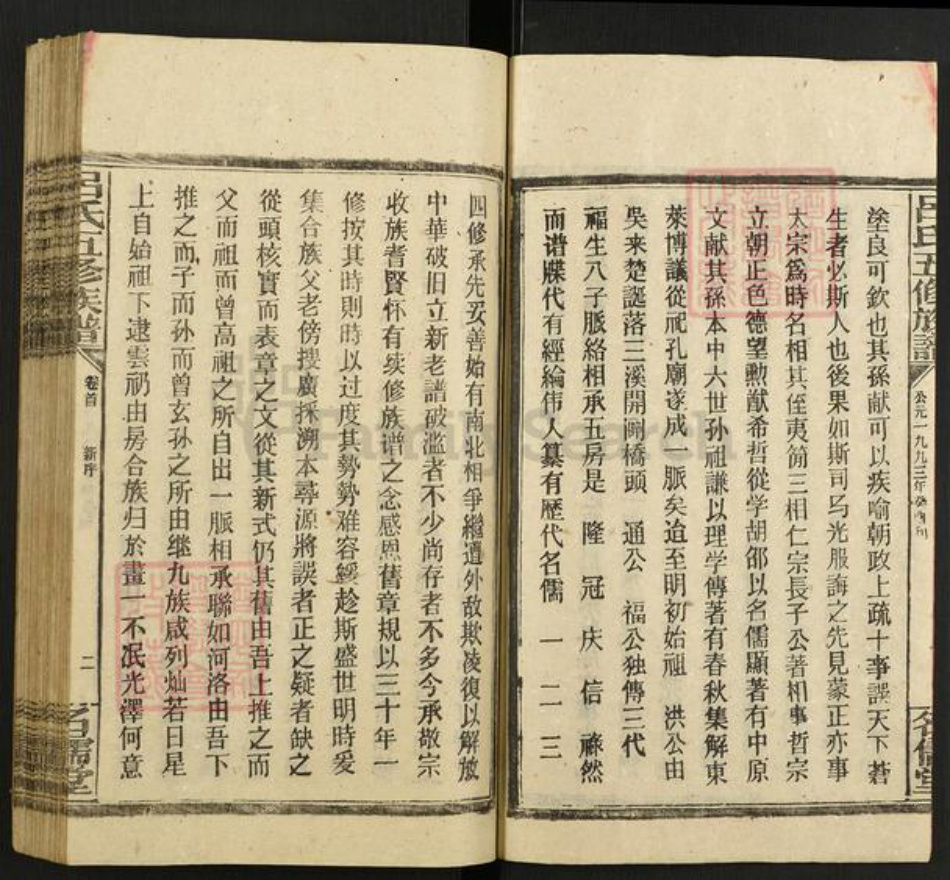 呂氏五修族譜
公元一九九三年癸酉刊
名儒堂
塗良可欽也其孫献可以疾喻朝政上疏十事誤天下蒼
生者必斯人也後果如斯司马光服誨之先見蒙正亦事
太宗爲時名相其侄夷簡三相仁宗長子公著相事哲宗
立朝正色德望勲猷希哲從学胡邵以名儒顯著有中原
文献其孫本中六世孙祖謙以理学傳著有春秋集解東
萊博議從祀孔廟遂成一脈矣迨至明初始祖 洪公由
吳来楚誕落三溪開澗橋頭 通公 福公独傳三代
福生八子脈絡相承五房是 隆 冠 庆 信 祿然
而谱牒代有經綸伟人纂有歷代名儒 一 二 三
四修承先妥善始有南北相爭繼遭外敌欺凌復以解放
中華破旧立新老譜破滥者不少尚存者不多今承敬宗
收族耆賢怀有续修族谱之念感恩舊章規以三十年一
修按其時則時以过度其勢勢难容緩趁斯盛世明時爰
集合族父老傍搜廣採溯本尋源將誤者正之疑者缺之
從頭核實而表章之文從其新式仍其舊由吾上推之而
父而祖而曾高祖之所自出一脈相承聯如河洛由吾下
推之而子而孙而曾玄孙之所由继九族咸列灿若日星
上自始祖下逮雲礽由房合族归於畫一不泯光澤何意
呂氏五修族譜
卷首
新序
二
名儒堂
FamilySearch